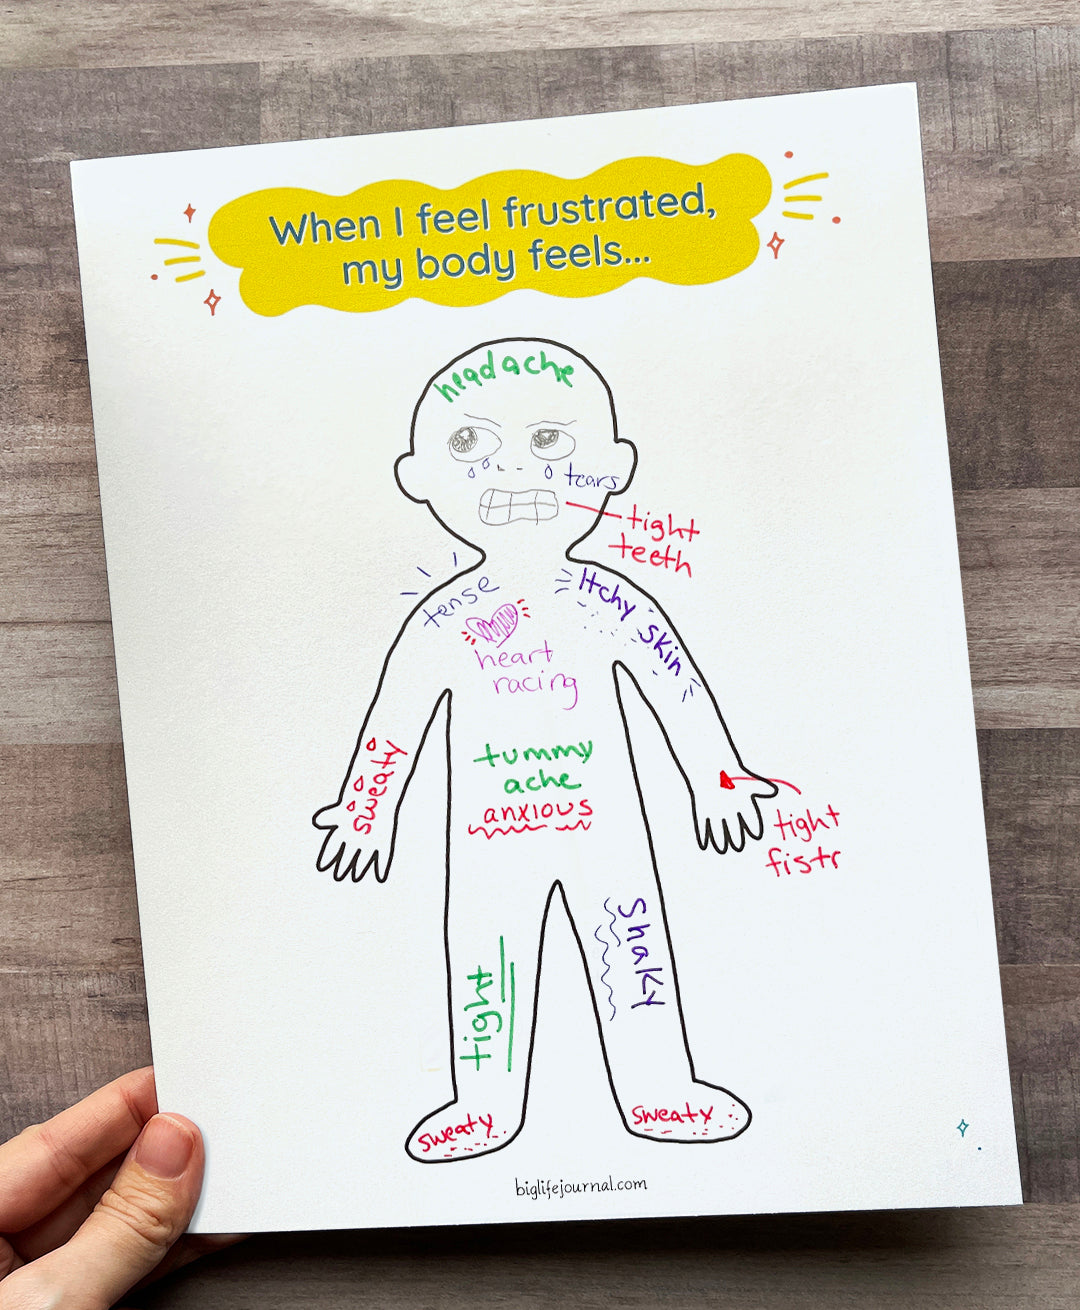 When I feel frustrated,
my body feels...
headache
tears
tight
teeth
tense
Itchy skin
heart
racing
tummy
ache
anxious
sweaty
tight
fists
tight
Shaky
sweaty
sweaty
biglifejournal.com